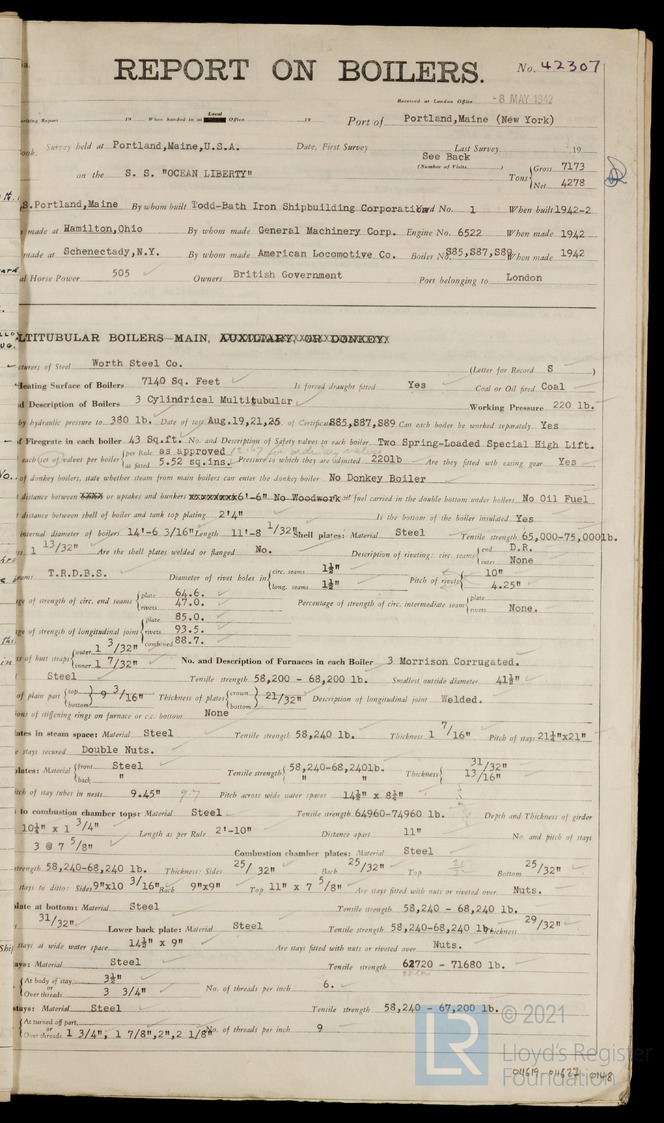 REPORT ON BOILERS.
No. 42307
Received at London Office -8 MAY 1942
Writing Report 19 When handed in at Local Office 19 Port of Portland,Maine (New York)
Survey held at Portland,Maine,U.S.A. Date, First Survey Last Survey 19
See Back
(Number of Visits )
on the S. S. "OCEAN LIBERTY" Tons { Gross 7173
Net 4278
S.Portland,Maine By whom built Todd-Bath Iron Shipbuilding Corporation Yard No. 1 When built 1942-2
made at Hamilton,Ohio By whom made General Machinery Corp. Engine No. 6522 When made 1942
made at Schenectady,N.Y. By whom made American Locomotive Co. Boiler No. S85,S87,S89 When made 1942
Horse Power 505 Owners British Government Port belonging to London
LTITUBULAR BOILERS—MAIN, AUXILIARY, OR DONKEY
cturers of Steel Worth Steel Co. (Letter for Record S )
Heating Surface of Boilers 7140 Sq. Feet Is forced draught fitted Yes Coal or Oil fired Coal
d Description of Boilers 3 Cylindrical Multitubular Working Pressure 220 lb.
by hydraulic pressure to 380 lb. Date of test Aug.19,21,25 of Certificate S85,S87,S89 Can each boiler be worked separately Yes
of Firegrate in each boiler 43 Sq.ft. No. and Description of Safety valves to each boiler Two Spring-Loaded Special High Lift.
each set of valves per boiler { per Rule as approved
as fitted 5.52 sq.ins. Pressure to which they are adjusted 220lb Are they fitted with easing gear Yes
of donkey boilers, state whether steam from main boilers can enter the donkey boiler No Donkey Boiler
distance between or uptakes and bunkers 6'-6" No Woodwork oil fuel carried in the double bottom under boilers No Oil Fuel
distance between shell of boiler and tank top plating 2'4" Is the bottom of the boiler insulated Yes
internal diameter of boilers 14'-6 3/16" Length 11'-8 1/32" Shell plates: Material Steel Tensile strength 65,000-75,000lb.
1 13/32" Are the shell plates welded or flanged No. Description of riveting: circ. seams { end D.R.
inter None
seams T.R.D.B.S. Diameter of rivet holes in { circ. seams 1½"
long. seams 1½" Pitch of rivets { 10"
4.25"
ge of strength of circ. end seams { plate 64.6.
rivets 47.0. Percentage of strength of circ. intermediate seam { plate
rivets None.
ge of strength of longitudinal joint { plate 85.0.
rivets 93.5.
combined 88.7.
of butt straps { outer 1 3/32"
inner 1 7/32" No. and Description of Furnaces in each Boiler 3 Morrison Corrugated.
Steel Tensile strength 58,200 - 68,200 lb. Smallest outside diameter 41½"
of plain part { top
bottom } 9 3/16" Thickness of plates { crown
bottom } 21/32" Description of longitudinal joint Welded.
ons of stiffening rings on furnace or c.c. bottom None
ates in steam space: Material Steel Tensile strength 58,240 lb. Thickness 1 7/16" Pitch of stays 21¼"x21"
stays secured Double Nuts.
plates: Material { front Steel
back " Tensile strength { 58,240-68,240lb.
" " Thickness { 31/32"
13/16"
itch of stay tubes in nests 9.45" 9.7 Pitch across wide water spaces 14½" x 8¼"
to combustion chamber tops: Material Steel Tensile strength 64960-74960 lb. Depth and Thickness of girder
10¼" x 1 3/4" Length as per Rule 2'-10" Distance apart 11" No. and pitch of stays
3 @ 7 5/8" Combustion chamber plates: Material Steel
strength 58,240-68,240 lb. Thickness: Sides 25/32" Back 25/32" Top Bottom 25/32"
stays to ditto: Sides 9"x10 3/16" Back 9"x9" Top 11" x 7 5/8" Are stays fitted with nuts or riveted over Nuts.
plate at bottom: Material Steel Tensile strength 58,240 - 68,240 lb.
31/32" Lower back plate: Material Steel Tensile strength 58,240-68,240 lb. Thickness 29/32"
stays at wide water space 14½" x 9" Are stays fitted with nuts or riveted over Nuts.
ays: Material Steel Tensile strength 62720 - 71680 lb.
{ At body of stay 3½"
or
Over threads 3 3/4" No. of threads per inch 6.
stays: Material Steel Tensile strength 58,240 - 67,200 lb.
{ At turned off part
or
Over threads 1 3/4", 1 7/8",2",2 1/8" No. of threads per inch 9
LR © 2021
Lloyd's Register
Foundation
011619-011627-0148